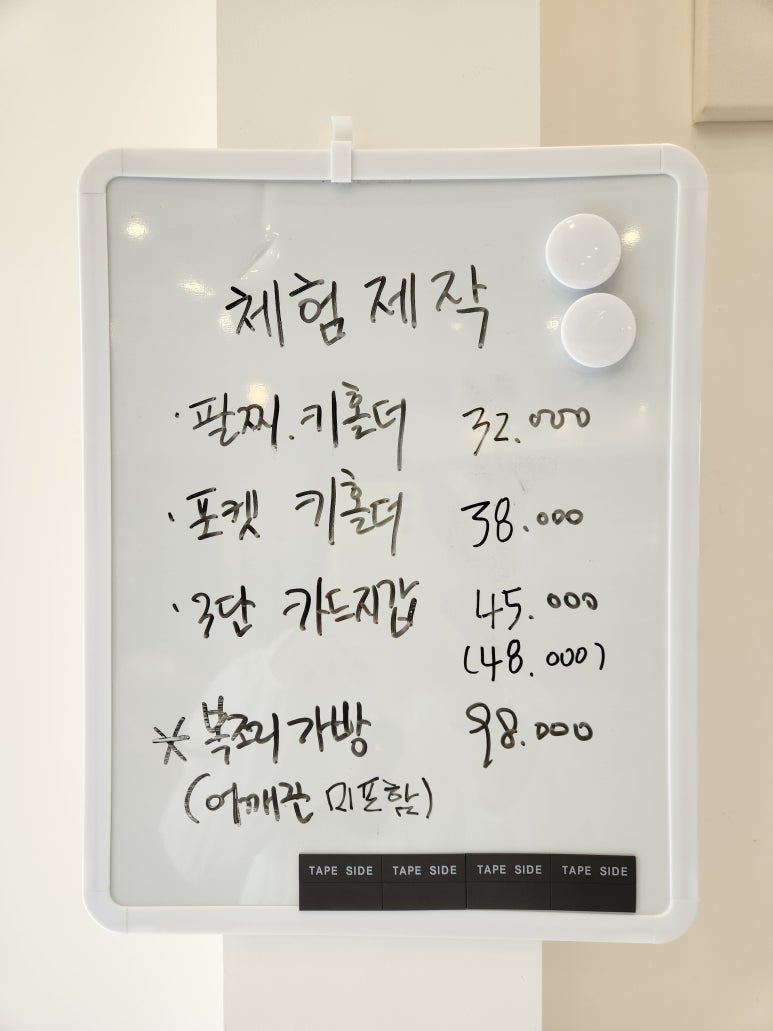 체험제작
·팔찌.키홀더 32.000
·포켓 키홀더 38.000
·3단 카드지갑 45.000
(48.000)
※복조리가방 98.000
(어깨끈 미포함)
TAPE SIDE TAPE SIDE TAPE SIDE TAPE SIDE